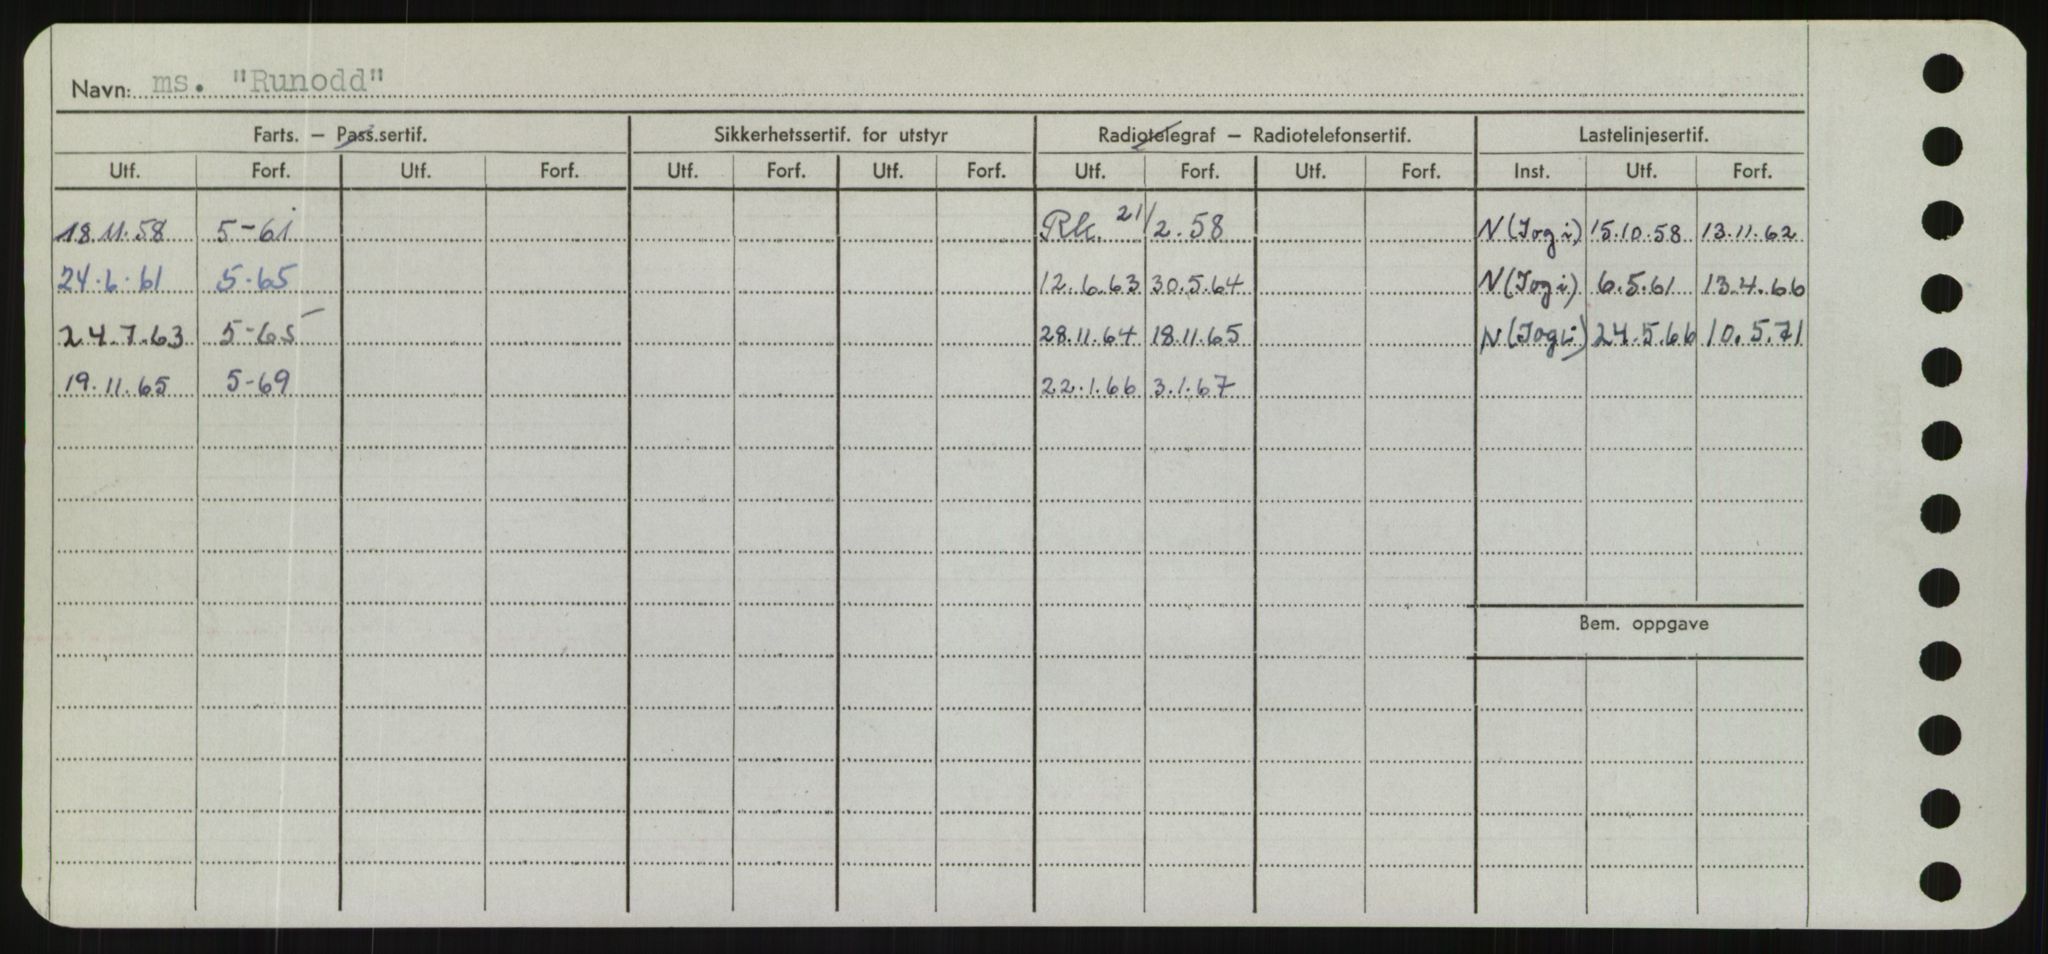 Navn: ms. "Runodd"
Farts. – Pass.sertif. Sikkerhetssertif. for utstyr Radiotelegraf – Radiotelefonsertif. Lastelinjesertif.
Utf. Forf. Utf. Forf. Utf. Forf. Utf. Forf. Utf. Forf. Utf. Forf. Inst. Utf. Forf.
18.11.58 5-61 Rk. 21/2.58 N(Jogi) 15.10.58 13.11.62
24.6.61 5.65 12.6.63 30.5.64 N(Jogi) 6.5.61 13.4.66
24.7.63 5-65 28.11.64 18.11.65 N(Jogi) 24.5.66 10.5.71
19.11.65 5-69 22.1.66 3.1.67
Bem. oppgave